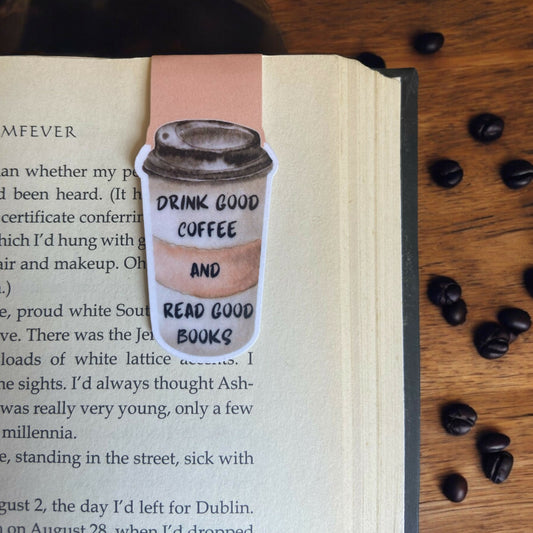 MFEVER
an whether my
DRINK GOOD
COFFEE
AND
READ GOOD
BOOKS
been heard. (It
certificate
hich I'd hung with
air and makeup.
.)
e, proud white
ve. There was the
loads of white lattice I
he sights. I'd always thought Ash-
was really very young, only a few
millennia.
e, standing in the street, sick with
gust 2, the day I'd left for Dublin.
on August 28, when I'd dropped